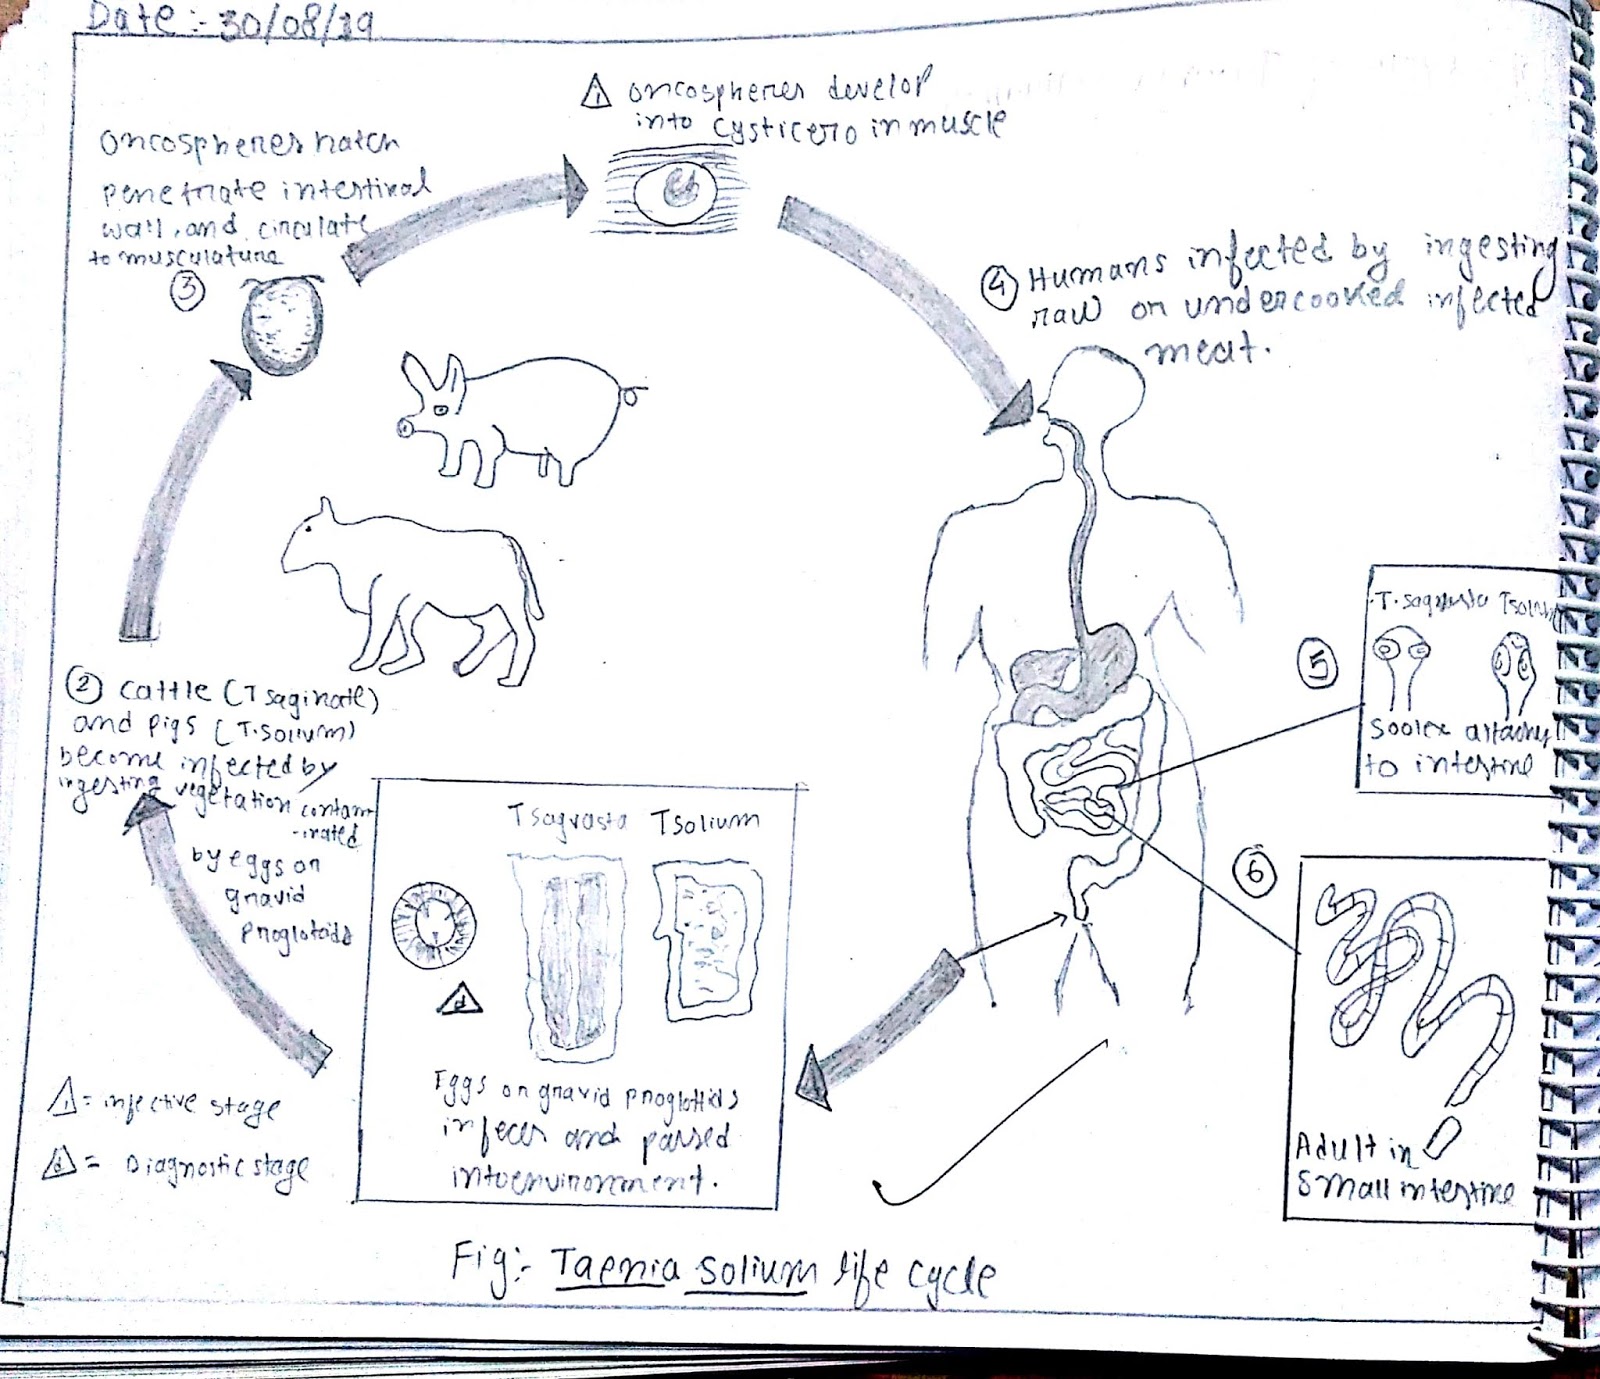 Date :- 30/08/19
i oncospheres develop
into cysticero in muscle
Oncospheres hatch
penetrate intestinal
wall, and circulate
to musculature
3
4 Humans infected by ingesting
raw or undercooked infected
meat.
5
T. sagrasta Tsolium
Soolex attaches
to intestine
2 Cattle (T saginate)
and pigs (T. solium)
become infected by
ingesting vegetation contam
-inated
by eggs or
gravid
proglotoids
Tsagrasta Tsolium
d
Eggs or gravid proglottids
in feces and passed
into environment.
6
Adult in
Small intestine
i = infective stage
d = Diagnostic stage
Fig:- Taenia solium life cycle